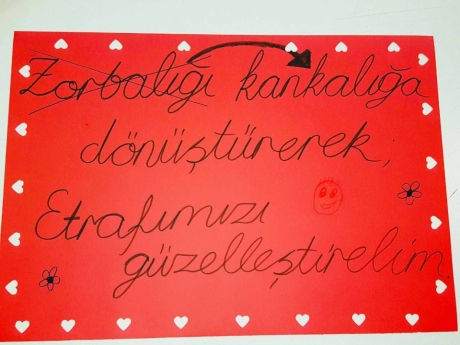 Zorbalığı kankalığa
dönüştürerek;
Etrafımızı
güzelleştirelim